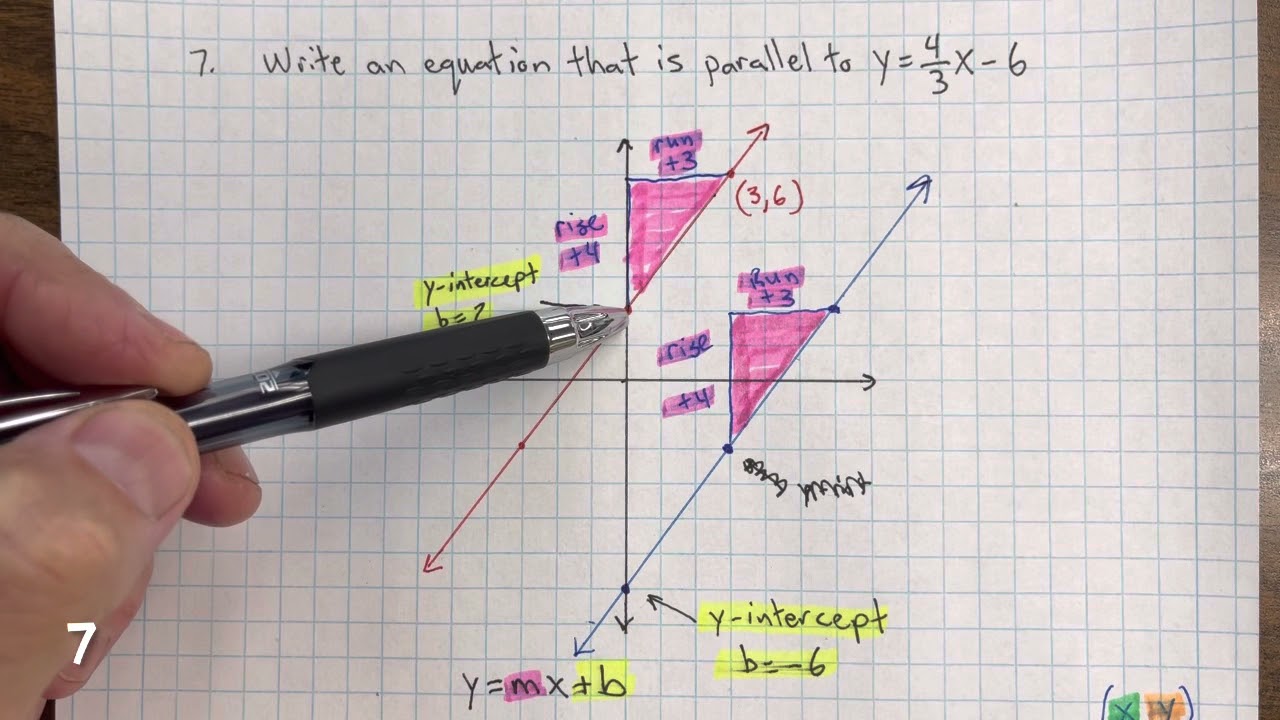 7. Write an equation that is parallel to y = 4/3 x - 6
run
+3
(3,6)
rise
+4
y-intercept
b=2
Run
+3
rise
+4
point
y-intercept
b=-6
y=mx+b
(x y)
7